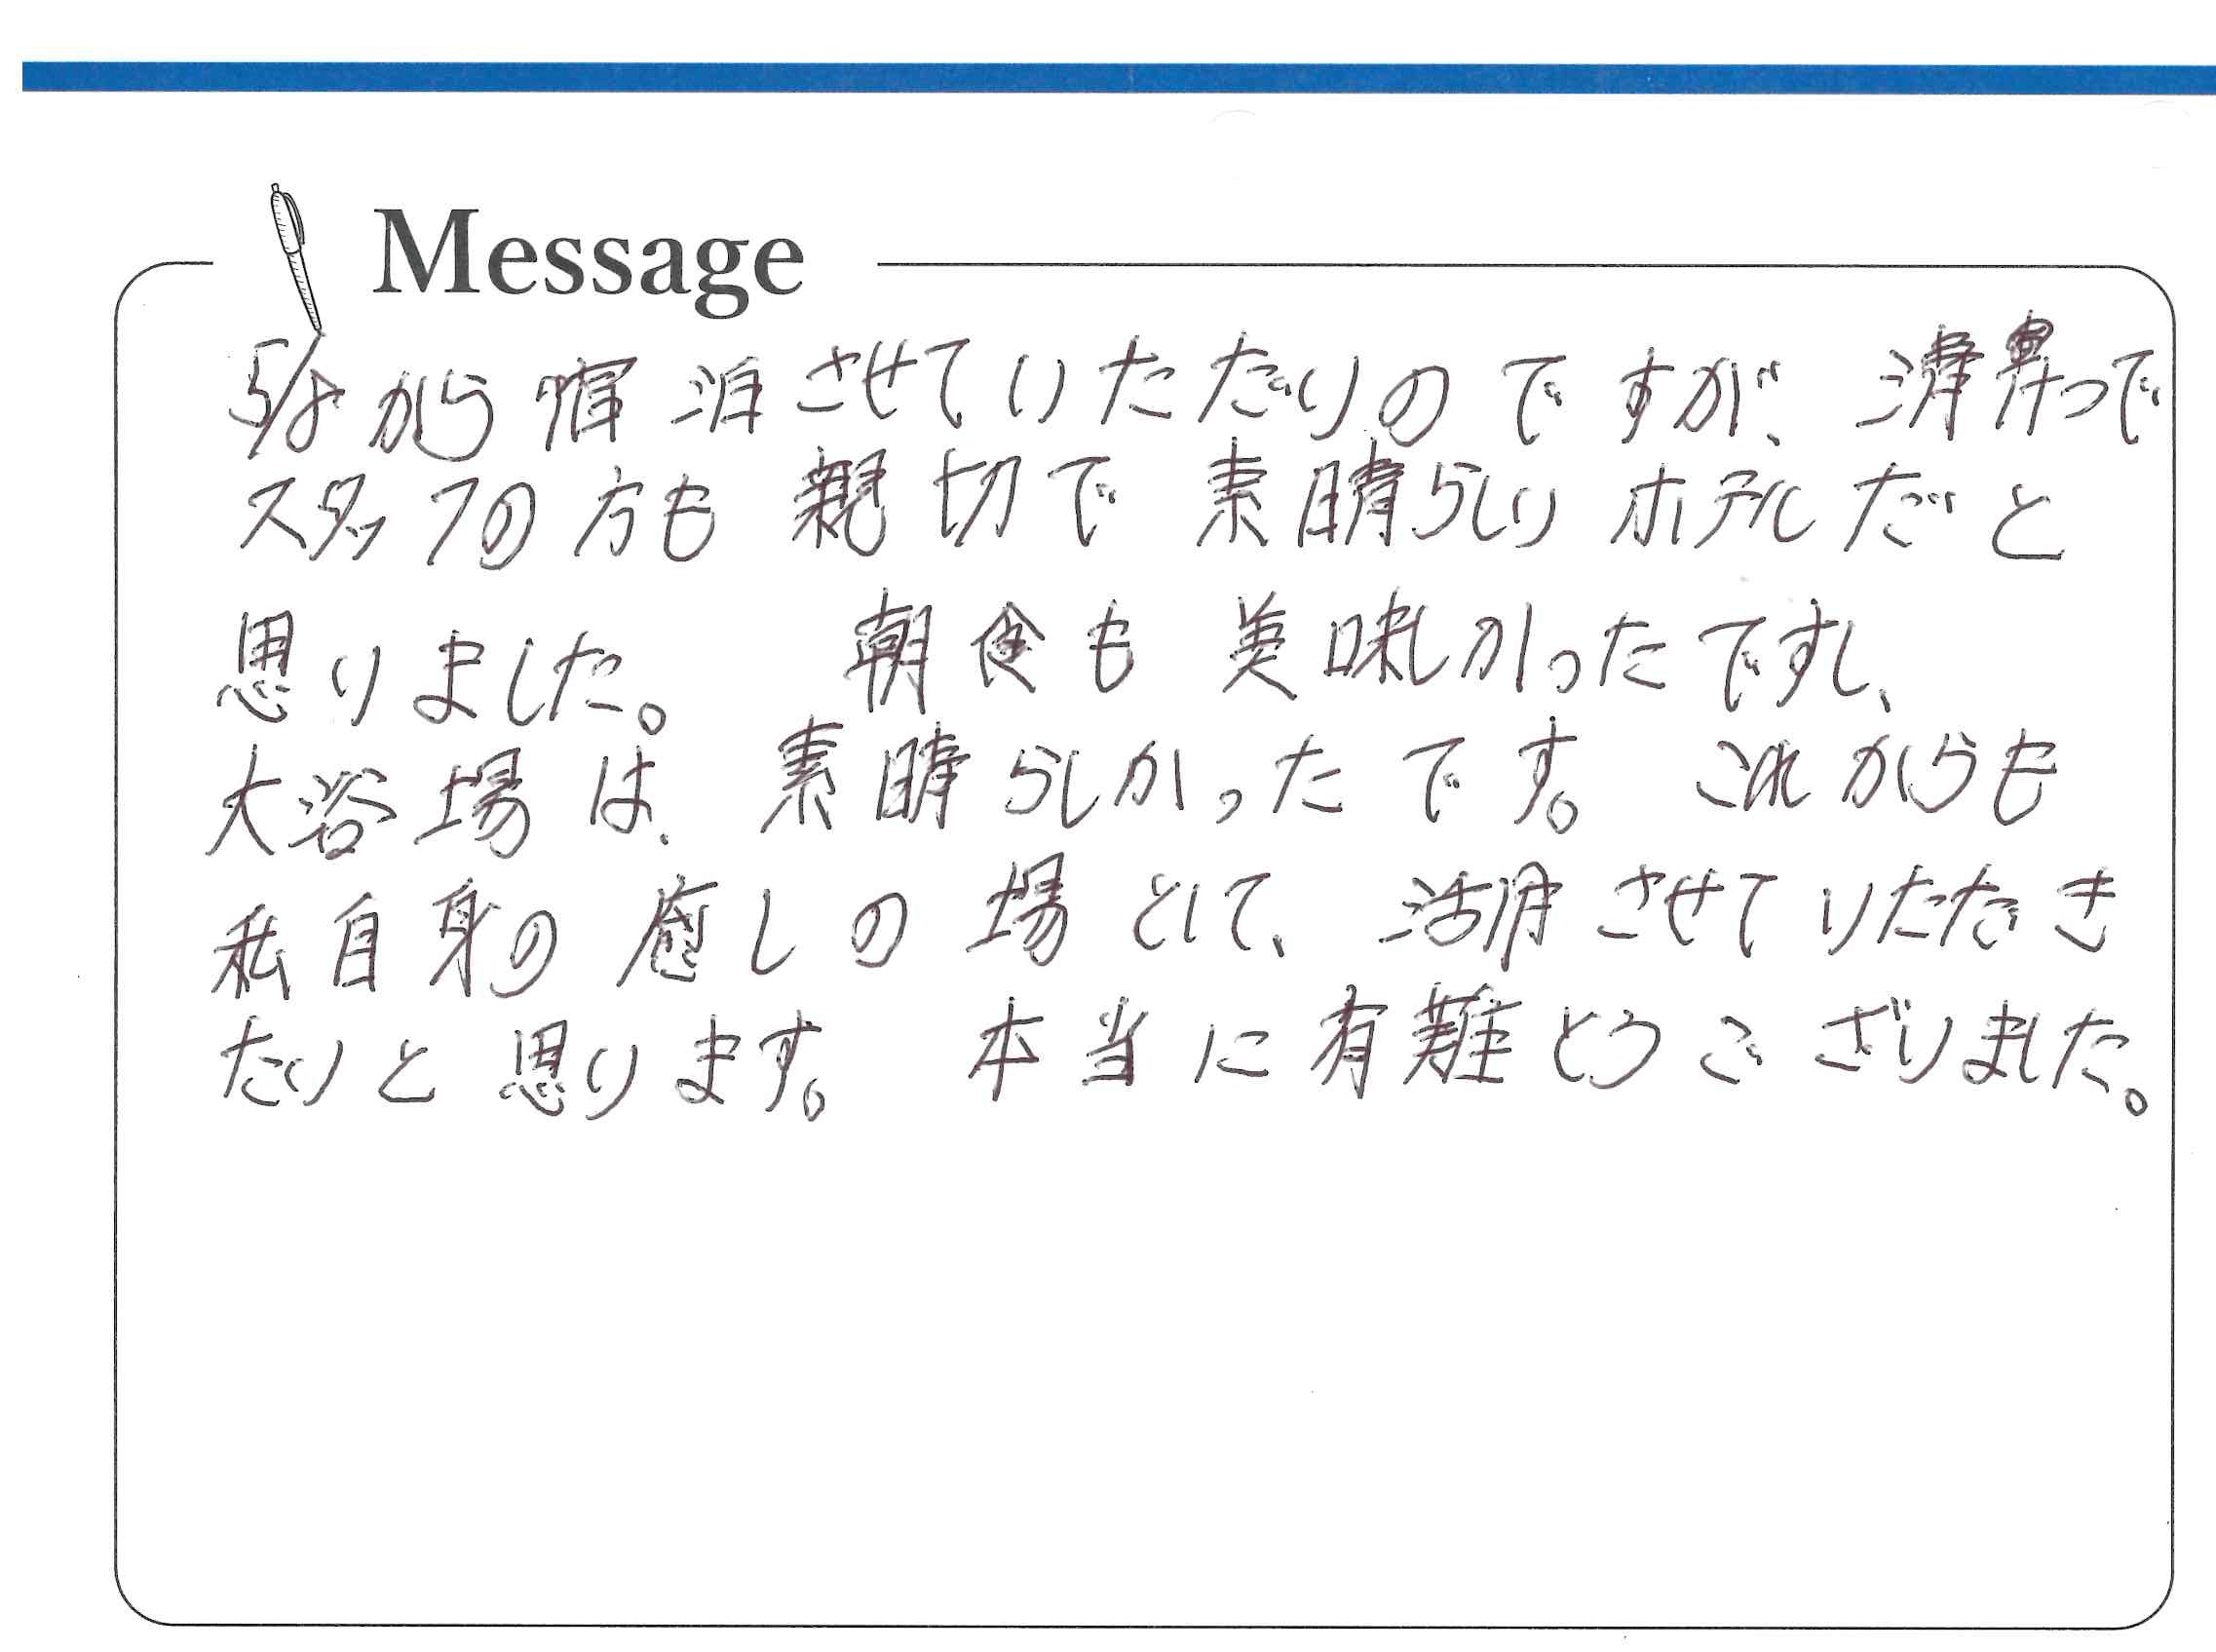 Message
5/8から宿泊させていただいのですが、清潔で
スタッフの方も親切で素晴らしいホテルだと
思いました。 朝食も美味しかったですし、
大浴場は、素晴らしかったです。これからも
私自身の癒しの場として、活用させていただき
たいと思います。 本当に有難とうございました。